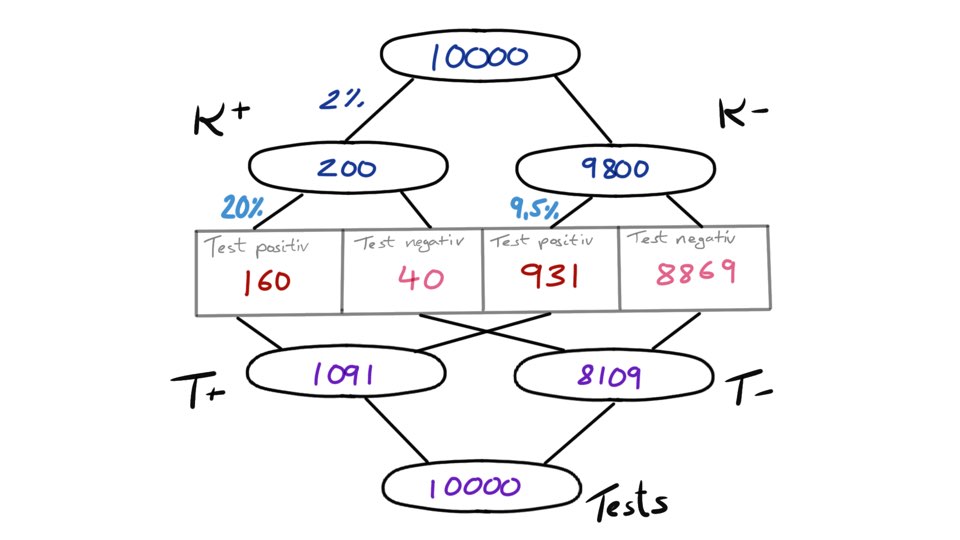 10000
2%
K+
K-
200
9800
20%
9,5%
Test positiv
Test negativ
Test positiv
Test negativ
160
40
931
8869
T+
1091
8109
T-
10000
Tests